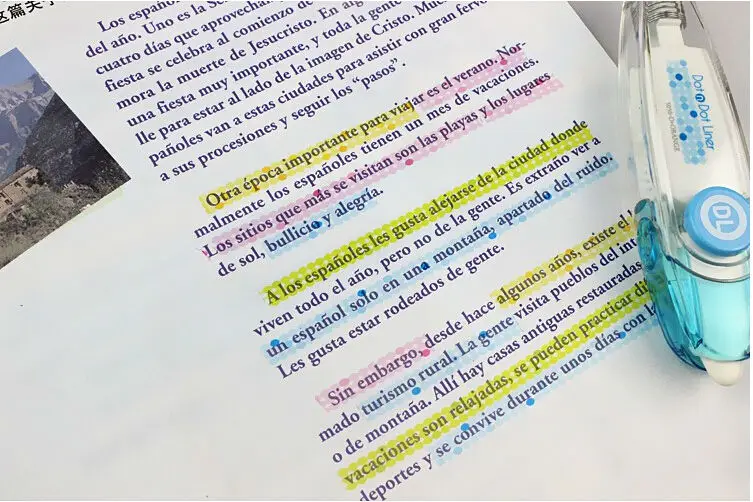 这篇关于
Los españo
del año. Uno es la Se
cuatro días que aprovechan
fiesta se celebra al comienzo de
mora la muerte de Jesucristo. En alg
una fiesta muy importante, y toda la gente
lle para estar al lado de la imagen de Cristo. Much
pañoles van a estas ciudades para asistir con gran fervo
a sus procesiones y seguir los “pasos”.
Otra época importante para viajar es el verano. Nor-
malmente los españoles tienen un mes de vacaciones.
Los sitios que más se visitan son las playas y los lugares
de sol, bullicio y alegría.
A los españoles les gusta alejarse de la ciudad donde
viven todo el año, pero no de la gente. Es extraño ver a
un español solo en una montaña, apartado del ruido.
Les gusta estar rodeados de gente.
Sin embargo, desde hace algunos años, existe el
mado turismo rural. La gente visita pueblos del int
o de montaña. Allí hay casas antiguas restauradas
vacaciones son relajadas, se pueden practicar di
deportes y se convive durante unos días con la
Dot n Dot Liner
DL